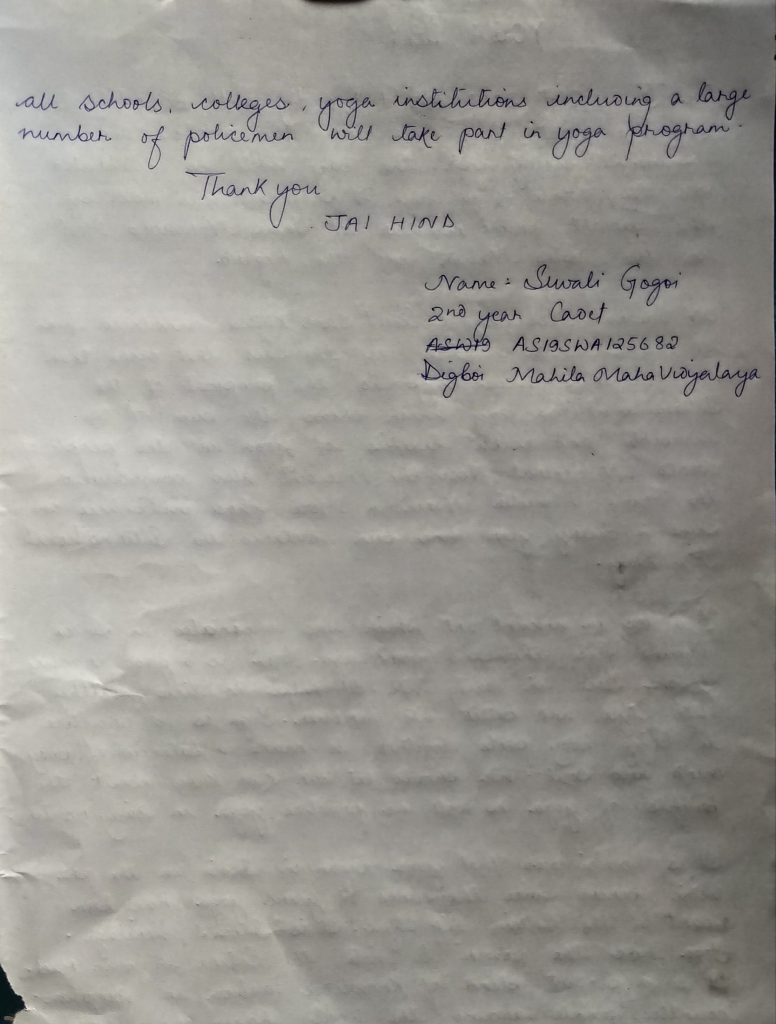 all schools, colleges, yoga institutions including a large
number of policemen will take part in yoga program.
Thank you
JAI HIND
Name: Suwali Gogoi
2nd year Cadet
ASW19 AS19SWA125682
Digboi Mahila MahaVidyalaya